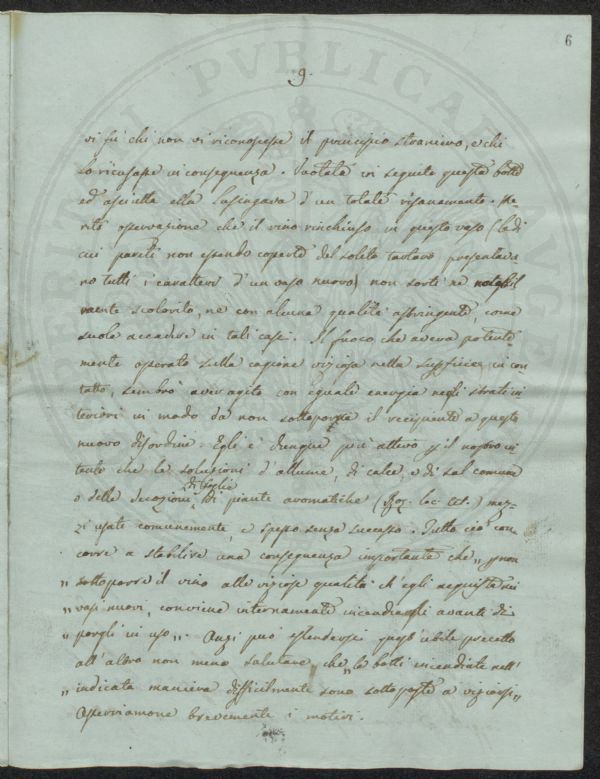 6
9.
vi fù chi non vi riconoscesse il principio straniero, e chi
lo ricusasse in conseguenza. Vuotata in seguito questa botte
ed asciutta ella lusingava d'un totale risanamento. Me-
ritò osservazione che il vino rinchiuso in questo vaso (le di
cui pareti non essendo coperte del solito tartaro presentava
no tutti i caratteri d'un vaso nuovo) non sortì nè notabil
mente scolorito, nè con alcuna qualità astringente, come
suole accadere in tali casi. Il fuoco, che aveva potente
mente operato sulla cagione viziosa nella superficie in con
tatto, sembrò aver agito con eguale energia negli strati in
teriori in modo da non sottoporre il recipiente a questo
nuovo disordine. Egli è dunque più attivo p il nostro in
tento che le soluzioni d'allume, di calce, e di sal comune
di foglie
o delle decozioni di piante aromatiche (Roz. loc. cit.) mez-
zi usati comunemente, e spesso senza successo. Tutto ciò con
corre a stabilire una conseguenza importante che „ p non
„ sottoporre il vino alle viziose qualità ch'egli acquista nei
„ vasi nuovi, conviene internamente incendiargli avanti di
„ porgli in uso „. Anzi può estendersi quest'utile precetto
all'altro non meno salutare, che „ le botti incendiate nell'
„ indicata maniera difficilmente sono sottoposte a viziarsi „
Osserviamone brevemente i motivi.